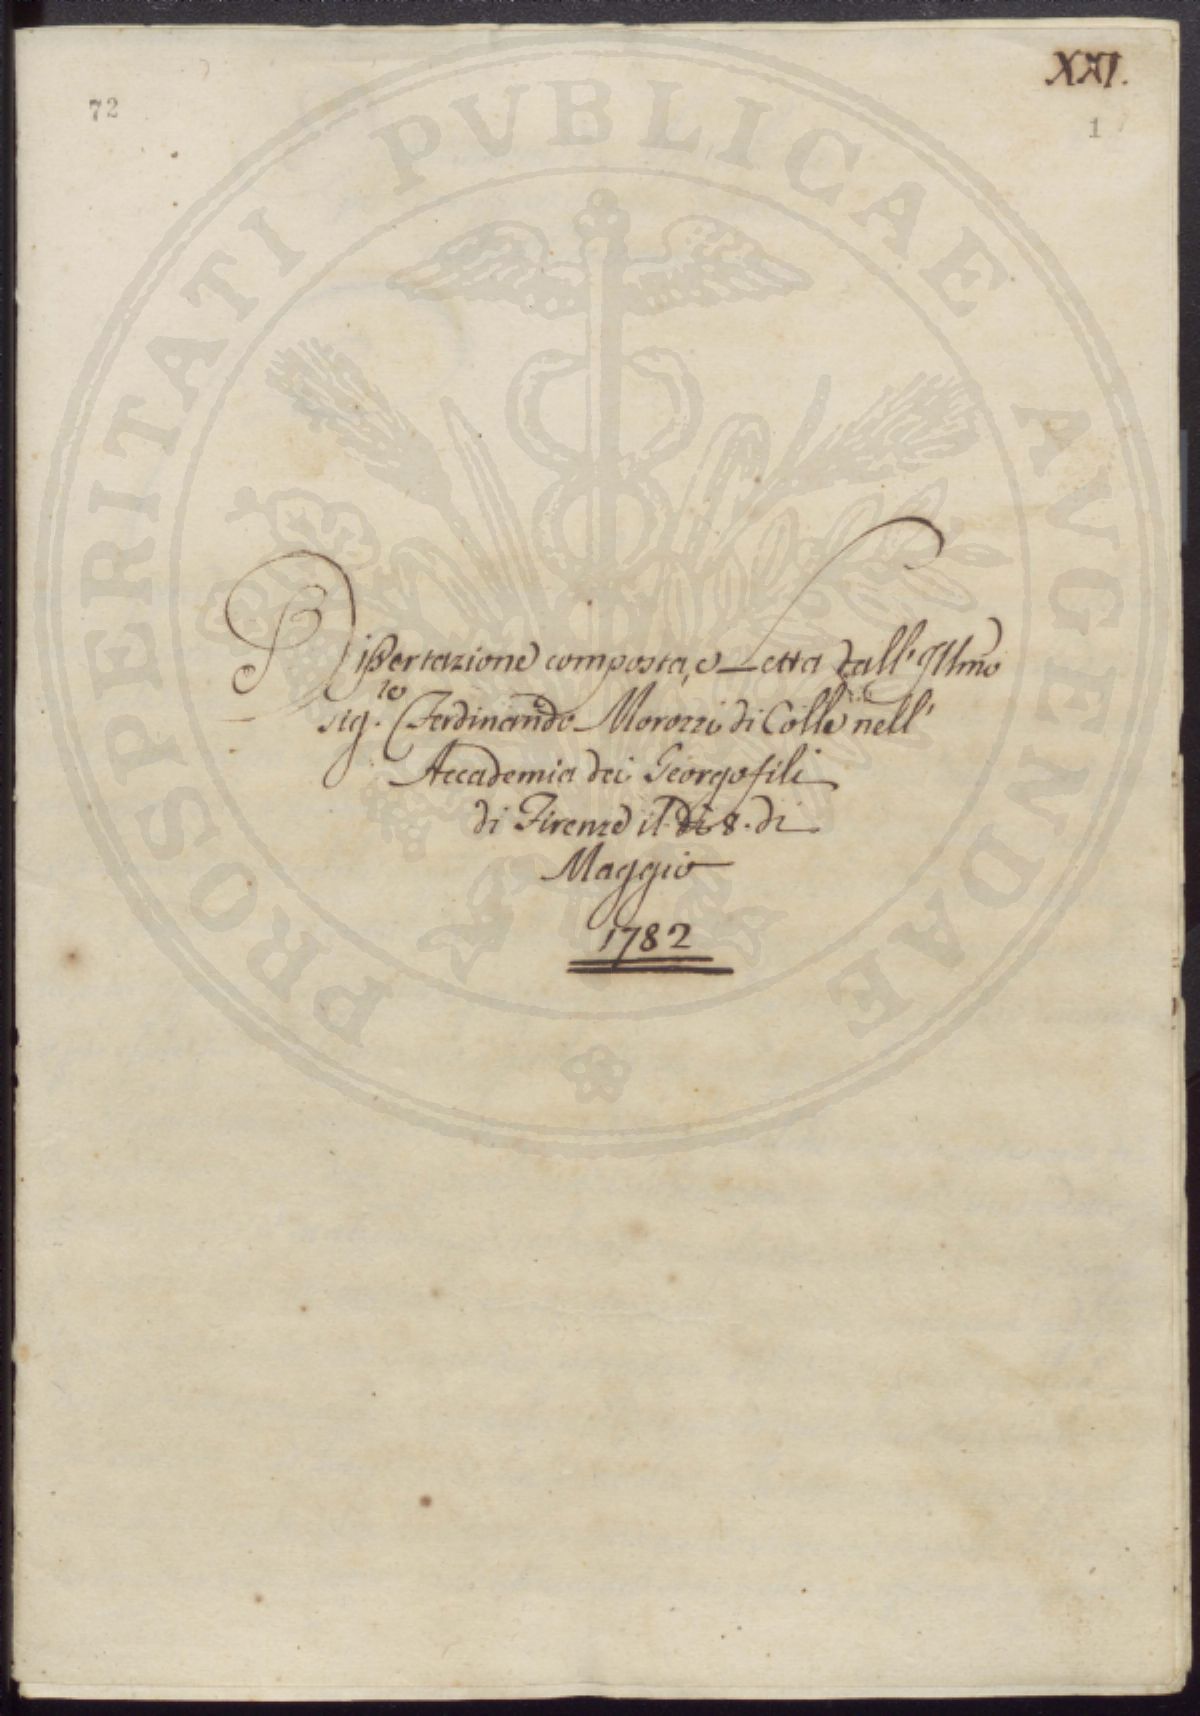 XXI.
72
1
PROSPERITATI PUBLICAE AVGENDAE
Dissertazione composta, e Letta dall' Illmo
sig.re Ferdinando Morozzi di Colle nell'
Accademia dei Georgofili
di Firenze il dì 8. di
Maggio
1782